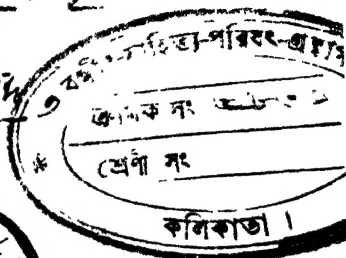 সাহিত্য-পরিষৎ-গ্রন্থা
ক্রমিক সং
শ্রেণী সং
কলিকাতা ।